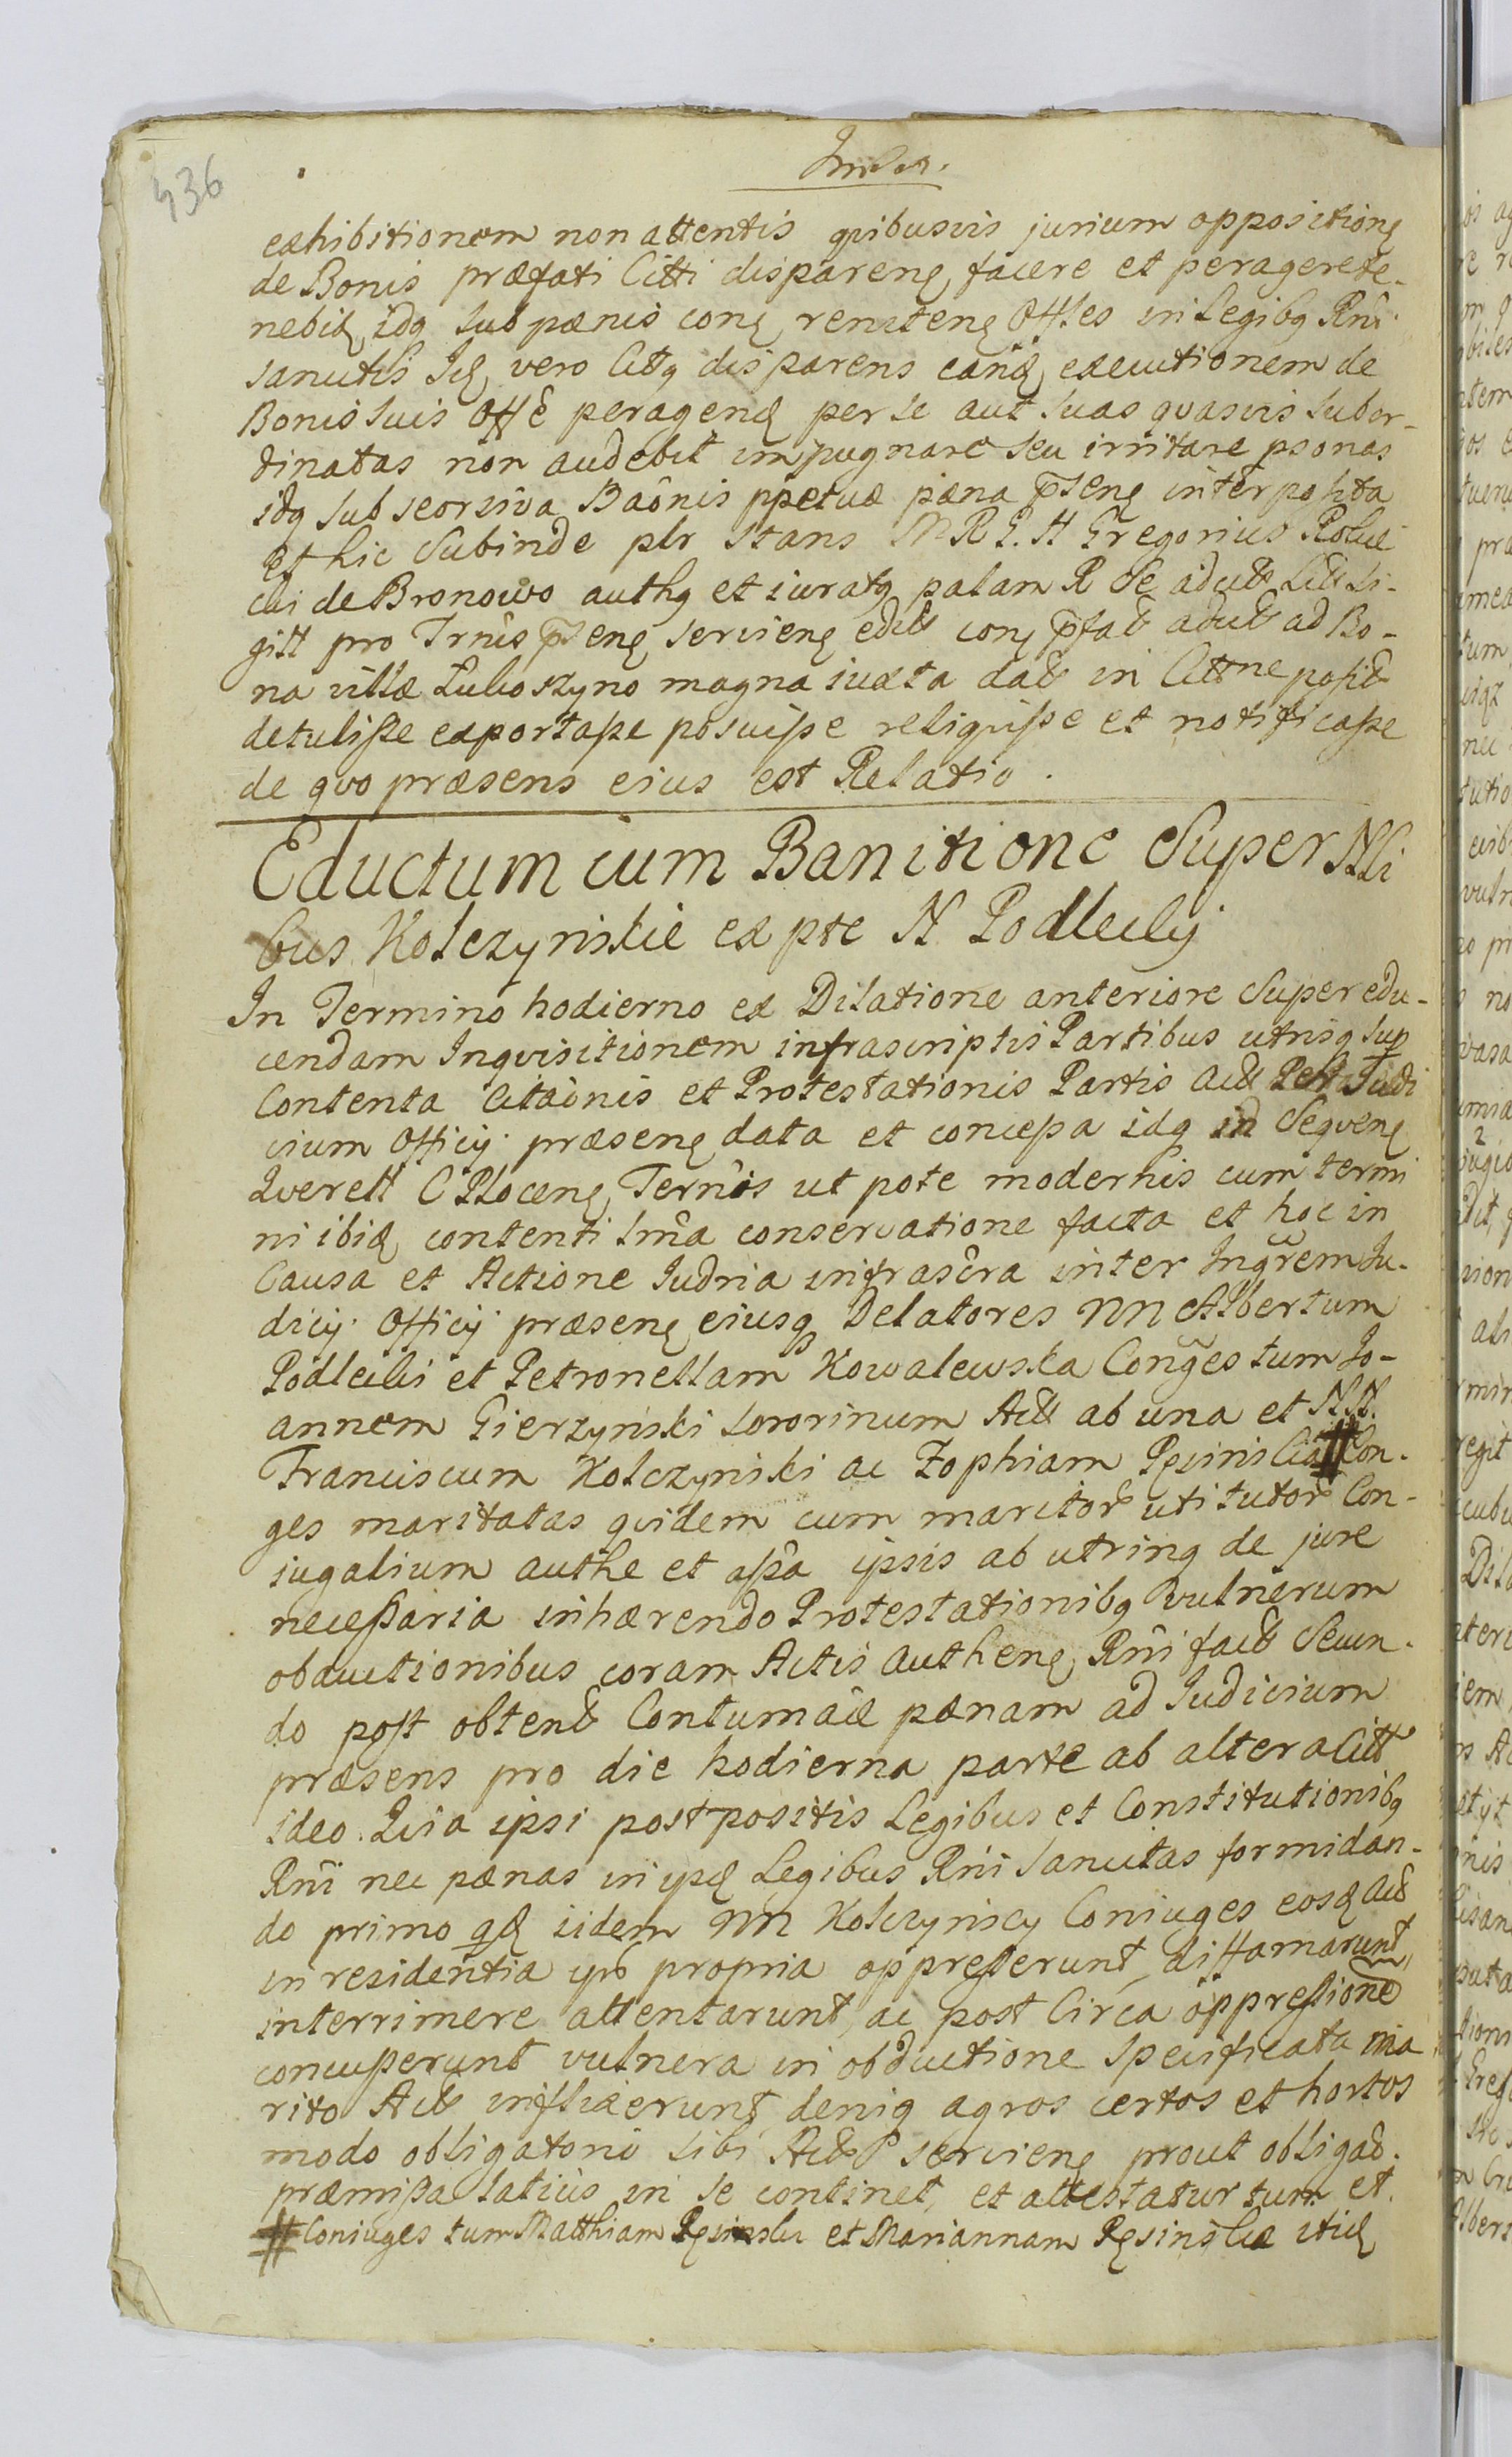 436
exhibitionem non attentis qvibusvis jurium oppositione
de Bonis præfati Citti disparene facere et peragere te-
nebit idq sub pænis cone renitene Offles in Legibq Rni
sancitis Ide vero Cittq disparens eand executionem de
Bonis suis Offê peragend per se aut suas qvasvis subor-
dinatas non audebit impugnare seu irritare psonas
idq sub seorsiva Baônis ppetuæ pæna pstene interposita
et hic subinde plr stans M R G. H Gregorius
de Bronowo authq et iuratq palam R Se
gitt pro Trnis psene serviene edit cone pfat ad Bo-
na villæ Lulioszyno magna iuxta dat in Cittne posit
detulisse exportasse posuisse reliqvisse et notificasse
de qvo præsens eius est Relatio.
Eductum cum Banitione Super Nli
bus Kolczynskie ex pte N Podlecky
In Termino hodierno ex Dilatione anteriore Super edu-
cendam Inqvisitionem infrascriptis Partibus utrisq sup
Contenta Citaônis et Protestationis Partis Act Per Judi
cium Officij præsene data et concessa idq in Seqvene
Qverell C Plocene Ternis ut pote modernis cum termi
ni ibid contenti smâ conservatione facta et hoc in
Causa et Actione Iudria infrascra inter Ingrem Ju-
dicij Officij præsene eiusq Delatores NN Albertum
Podlecki et Petronellam Kowalewska Conges tum Jo-
annem Gierzynski sororinum Act ab una et N.N.
Franciscum Kolczynski ac Zophiam # Con-
ges maritatas qvidem cum maritor uti tutor Con-
iugalium authe et assa ipsis ab utrinq de jure
necessaria inhærendo Protestationibq vulnerum
obductionibus coram Actis Authene Rni fact Secun-
do post obtent Contumaciæ pænam ad Iudicium
præsens pro die hodierna parte ab altera Citt
ideo. Qvia ipsi postpositis Legibus et Constitutionibq
Rni nec pænas in ipse Legibus Rni sancitas formidan-
do primo qd iidem NN Kolczynscy Coniuges eosd Act
in residentia ipr propria oppresserunt, diffamarunt,
interrimere attentarunt, ac post Circa oppressione
concusserunt vulnera in obductione specificata ma
rito Act inflixerunt deniq agros certos et hortos
modo obligatorio sibi Act serviene prout obligao.
præmissa latius in se continet, et attestatur tum et.
# Coniuges tum Matthiam et Mariannam itid